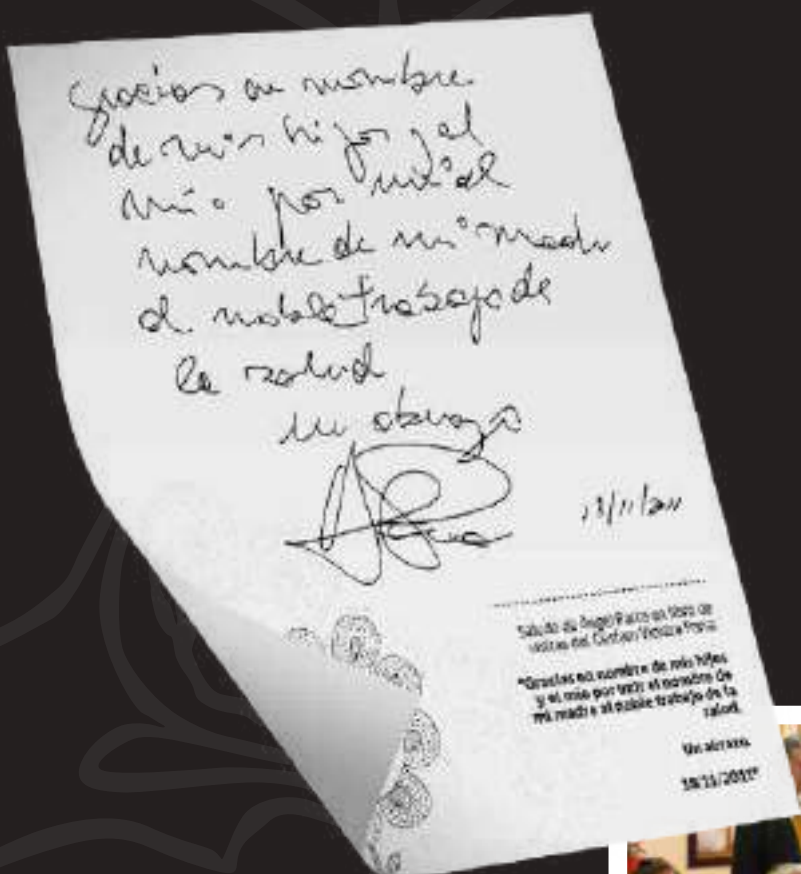 Gracias en nombre
de mis hijos y el
mío por unir el
nombre de mi madre
al noble trabajo de
la salud
un abrazo
18/11/2011
Saludo de Ángel Parra en libro de
visitas del Cesfam Violeta Parra
"Gracias en nombre de mis hijos
y el mío por unir el nombre de
mi madre al noble trabajo de la
salud.
Un abrazo.
18/11/2011"